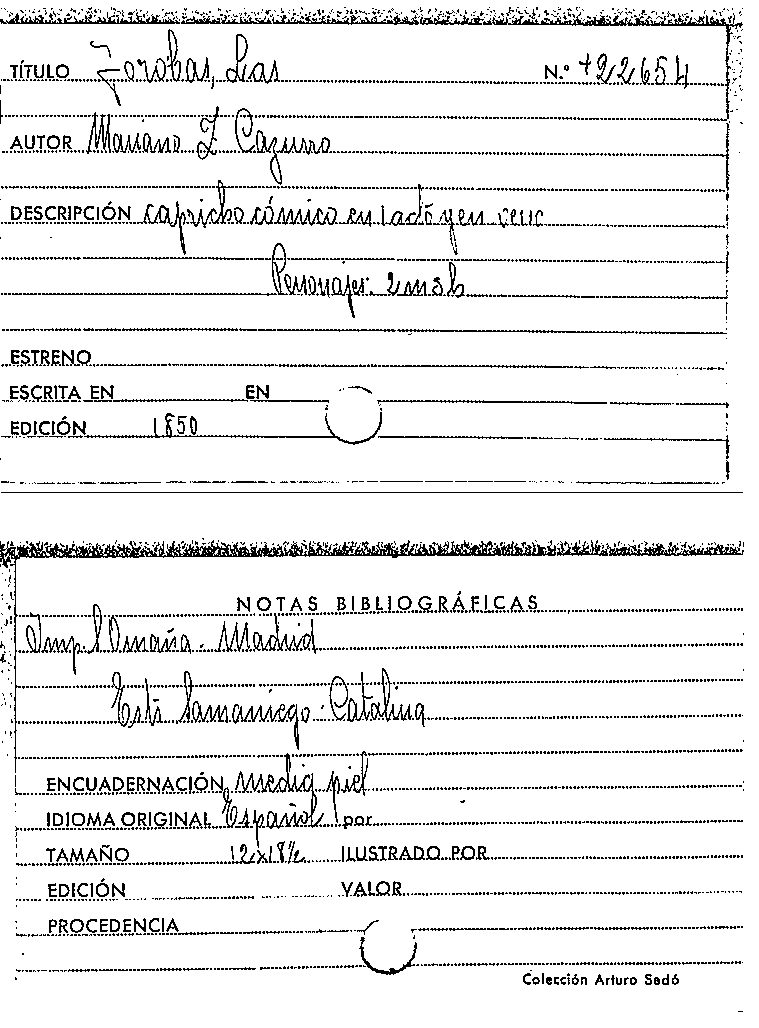 TÍTULO Jorobas, Las N.º +22654
AUTOR Mariano Z Cazurro
DESCRIPCIÓN capricho cómico en 1 acto y en verso
Personajes. 2 m 3 h
ESTRENO
ESCRITA EN EN
EDICIÓN 1850
NOTAS BIBLIOGRÁFICAS
Imp. S Omaña. Madrid
Samaniego. Catalina
ENCUADERNACIÓN media piel
IDIOMA ORIGINAL Español por
TAMAÑO 12x18½ ILUSTRADO POR
EDICIÓN VALOR
PROCEDENCIA
Colección Arturo Sedó